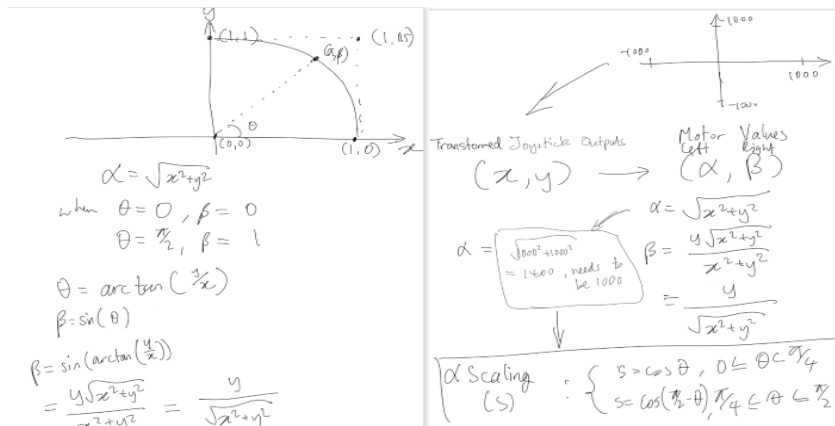 y
(1,1)
(α,β)
(1,0.5)
θ
(0,0)
(1,0)
x
α = √(x²+y²)
when θ = 0 , β = 0
θ = π/2, β = 1
θ = arctan(y/x)
β = sin(θ)
β = sin(arctan(y/x))
= y√(x²+y²)/(x²+y²) = y/√(x²+y²)
1000
-1000
1000
-1000
Transformed Joystick Outputs
Motor Values
Left Right
(x,y) → (α, β)
α = √(x²+y²)
α = √(1000²+1000²)
= 1400, needs to
be 1000
β = y√(x²+y²)/(x²+y²)
= y/√(x²+y²)
α Scaling
(S)
: { S = cos θ , 0 ≤ θ < π/4
S = cos(π/2-θ), π/4 ≤ θ ≤ π/2